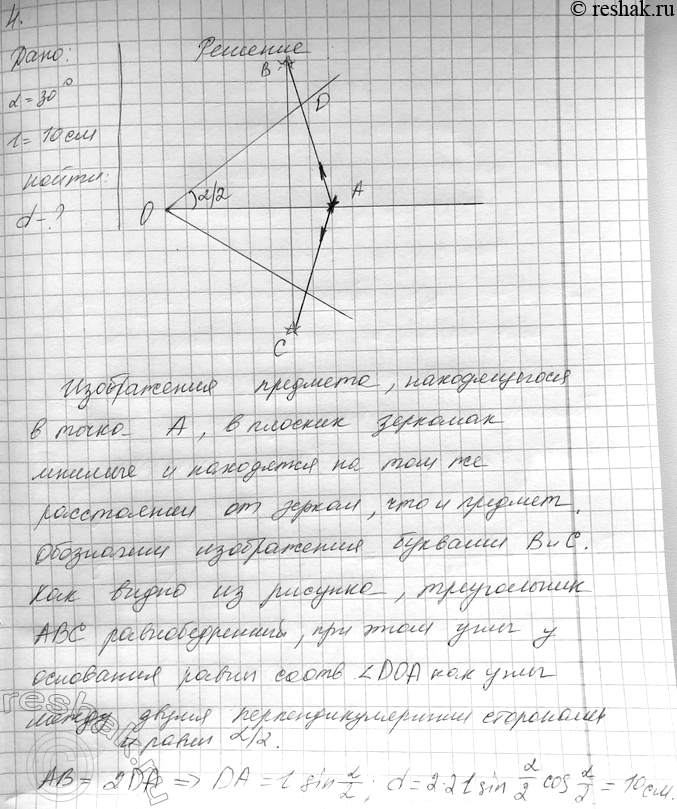 © reshak.ru
4.
Дано:
Решение
α = 30°
l = 10 см
Найти:
d - ?
B
D
A
O
α/2
C
Изображения предмета, находящегося
в точке A, в плоских зеркалах
мнимые и находятся на том же
расстоянии от зеркал, что и предмет.
Обозначим изображения буквами B и C.
Как видно из рисунка, треугольник
ABC равнобедренный, при этом углы у
основания равны соотв. ∠DOA как углы
между двумя перпендикулярными сторонами
и равны α/2.
AB = 2DA => DA = l sin α/2; d = 2·2l sin α/2 cos α/2 = 10 см.
reshak.ru